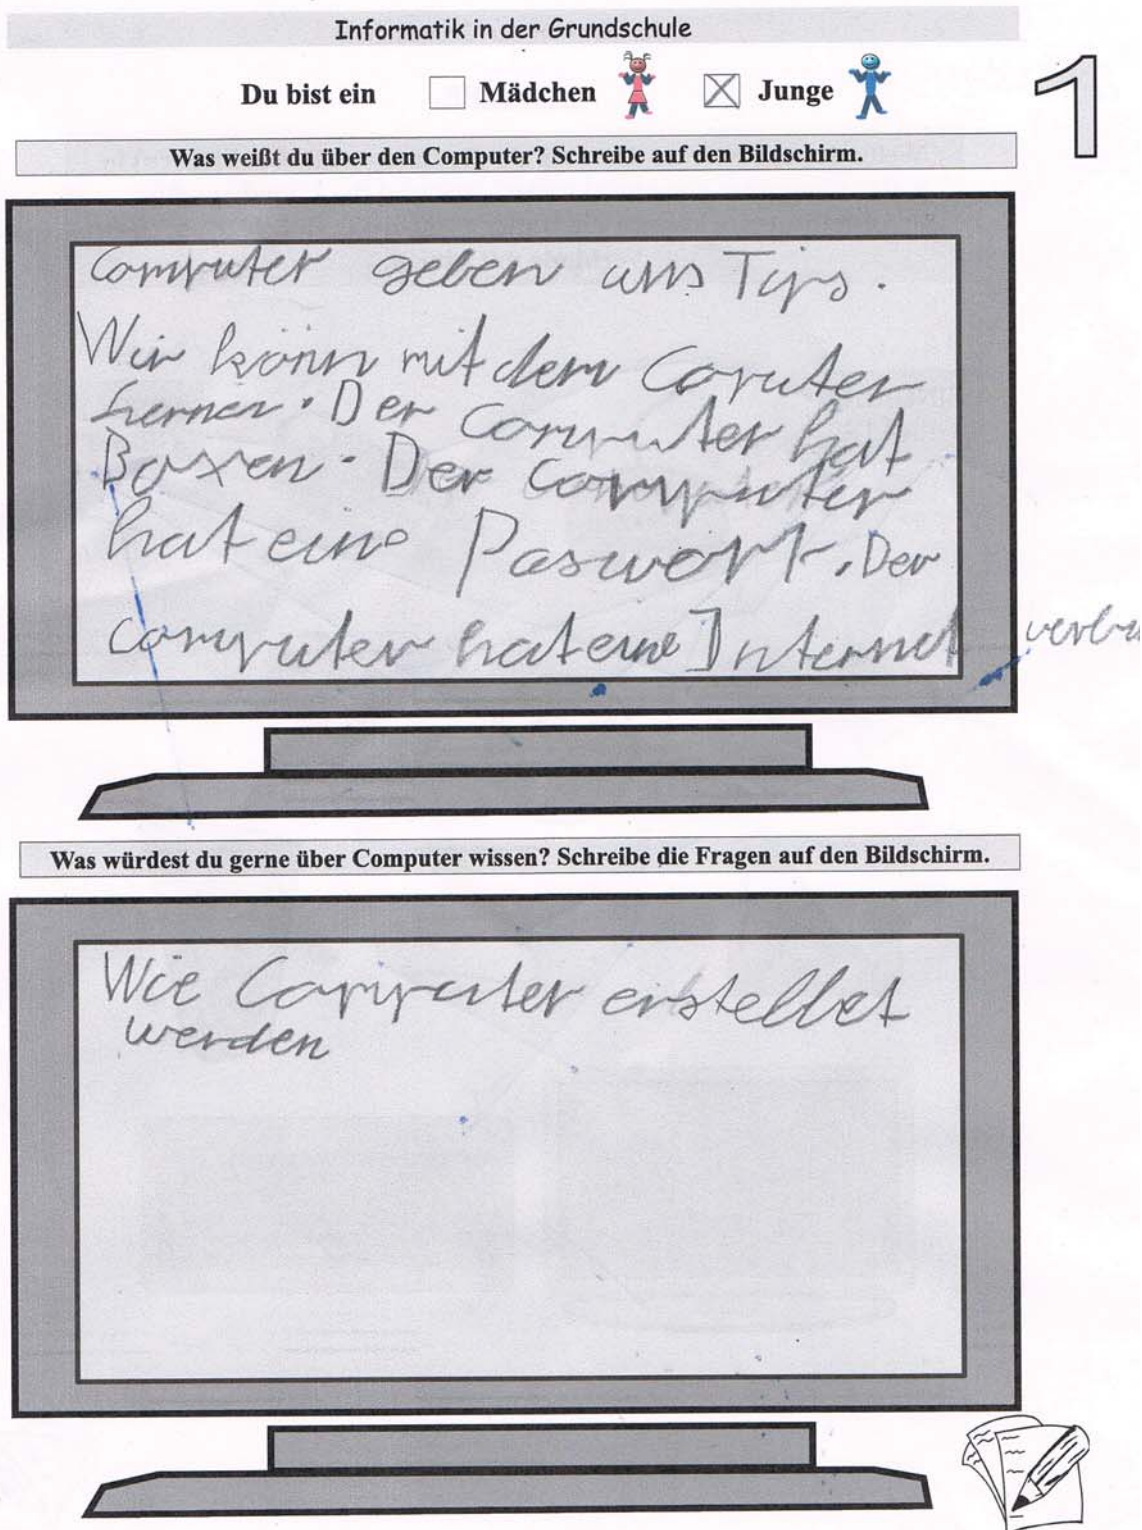 Informatik in der Grundschule
Du bist ein Mädchen Junge
1
Was weißt du über den Computer? Schreibe auf den Bildschirm.
Computer geben uns Tips.
Wir könn mit dem Coputer
lernen. Der Computer hat
Boxen. Der Computer
hat eine Paswort. Der
Computer hat eine Internet
Was würdest du gerne über Computer wissen? Schreibe die Fragen auf den Bildschirm.
Wie Computer erstellet
werden